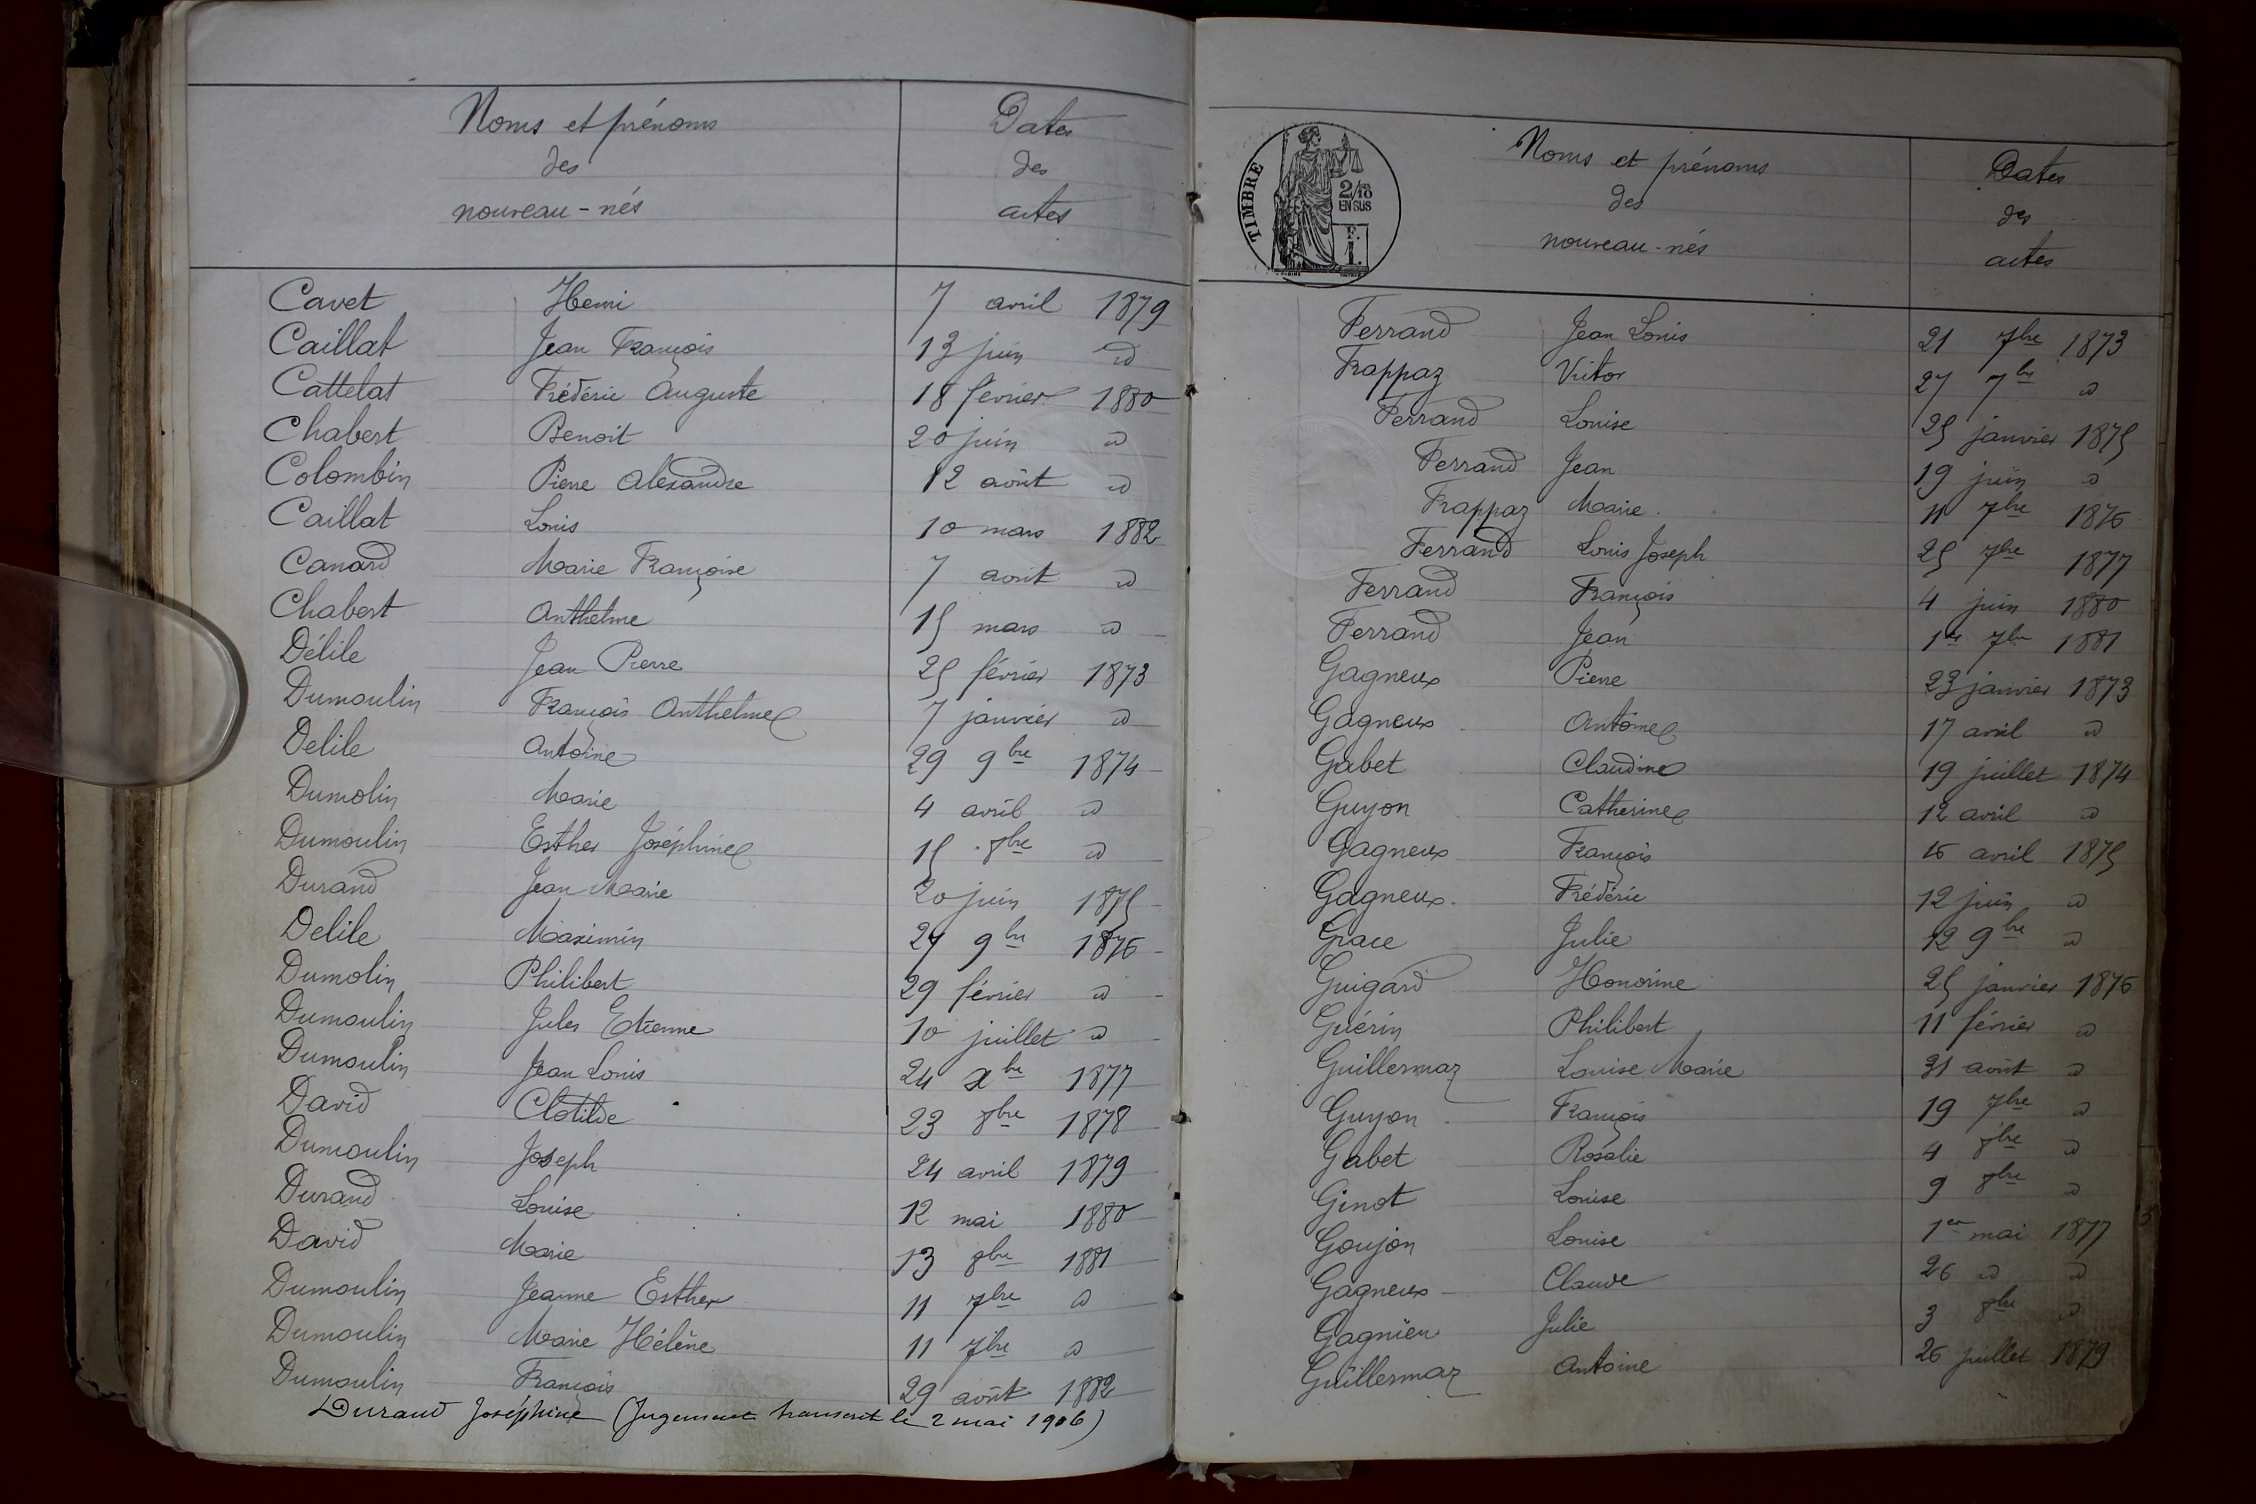 Noms et prénoms
des
nouveau-nés
Dates
des
actes
Cavet Henri 7 avril 1879
Caillat Jean François 13 juin d
Cattelat Frédéric Auguste 18 février 1880
Chabert Benoit 20 juin d
Colombin Pierre Alexandre 12 août d
Caillat Louis 10 mars 1882
Canard Marie Françoise 7 août d
Chabert Anthelme 15 mars d
Délile Jean Pierre 25 février 1873
Dumoulin François Anthelme 7 janvier d
Delile Antoine 29 9bre 1874
Dumolin Marie 4 avril d
Dumoulin Esther Joséphine 15 8bre d
Durand Jean Marie 20 juin 1875
Delile Maximin 27 9bre 1876
Dumolin Philibert 29 février d
Dumoulin Jules Etienne 10 juillet d
Dumoulin Jean Louis 24 xbre 1877
David Clotilde 23 8bre 1878
Dumoulin Joseph 24 avril 1879
Durand Louise 12 mai 1880
David Marie 13 8bre 1881
Dumoulin Jeanne Esther 11 7bre d
Dumoulin Marie Hélène 11 7bre d
Dumoulin François 29 août 1882
Durand Joséphine (Jugement transcrit le 2 mai 1906)
TIMBRE
2/10
EN SUS
F.
1.
Noms et prénoms
des
nouveau-nés
Dates
des
actes
Ferrand Jean Louis 21 7bre 1873
Frappaz Victor 27 7bre d
Ferrand Louise 25 janvier 1875
Ferrand Jean 19 juin d
Frappaz Marie 11 7bre 1876
Ferrand Louis Joseph 25 7bre 1877
Ferrand François 4 juin 1880
Ferrand Jean 1er 7bre 1881
Gagneux Pierre 23 janvier 1873
Gagneux Antoine 17 avril d
Gabet Claudine 19 juillet 1874
Guyon Catherine 12 avril d
Gagneux François 16 avril 1875
Gagneux Frédéric 12 juin d
Grace Julie 12 9bre d
Guigard Honorine 25 janvier 1876
Guérin Philibert 11 février d
Guillermaz Louise Marie 31 août d
Guyon François 19 7bre d
Gabet Rosalie 4 8bre d
Ginot Louise 9 8bre d
Goujon Louise 1er mai 1877
Gagneux Claude 26 d d
Gagnieu Julie 3 8bre d
Guillermaz Antoine 26 juillet 1879